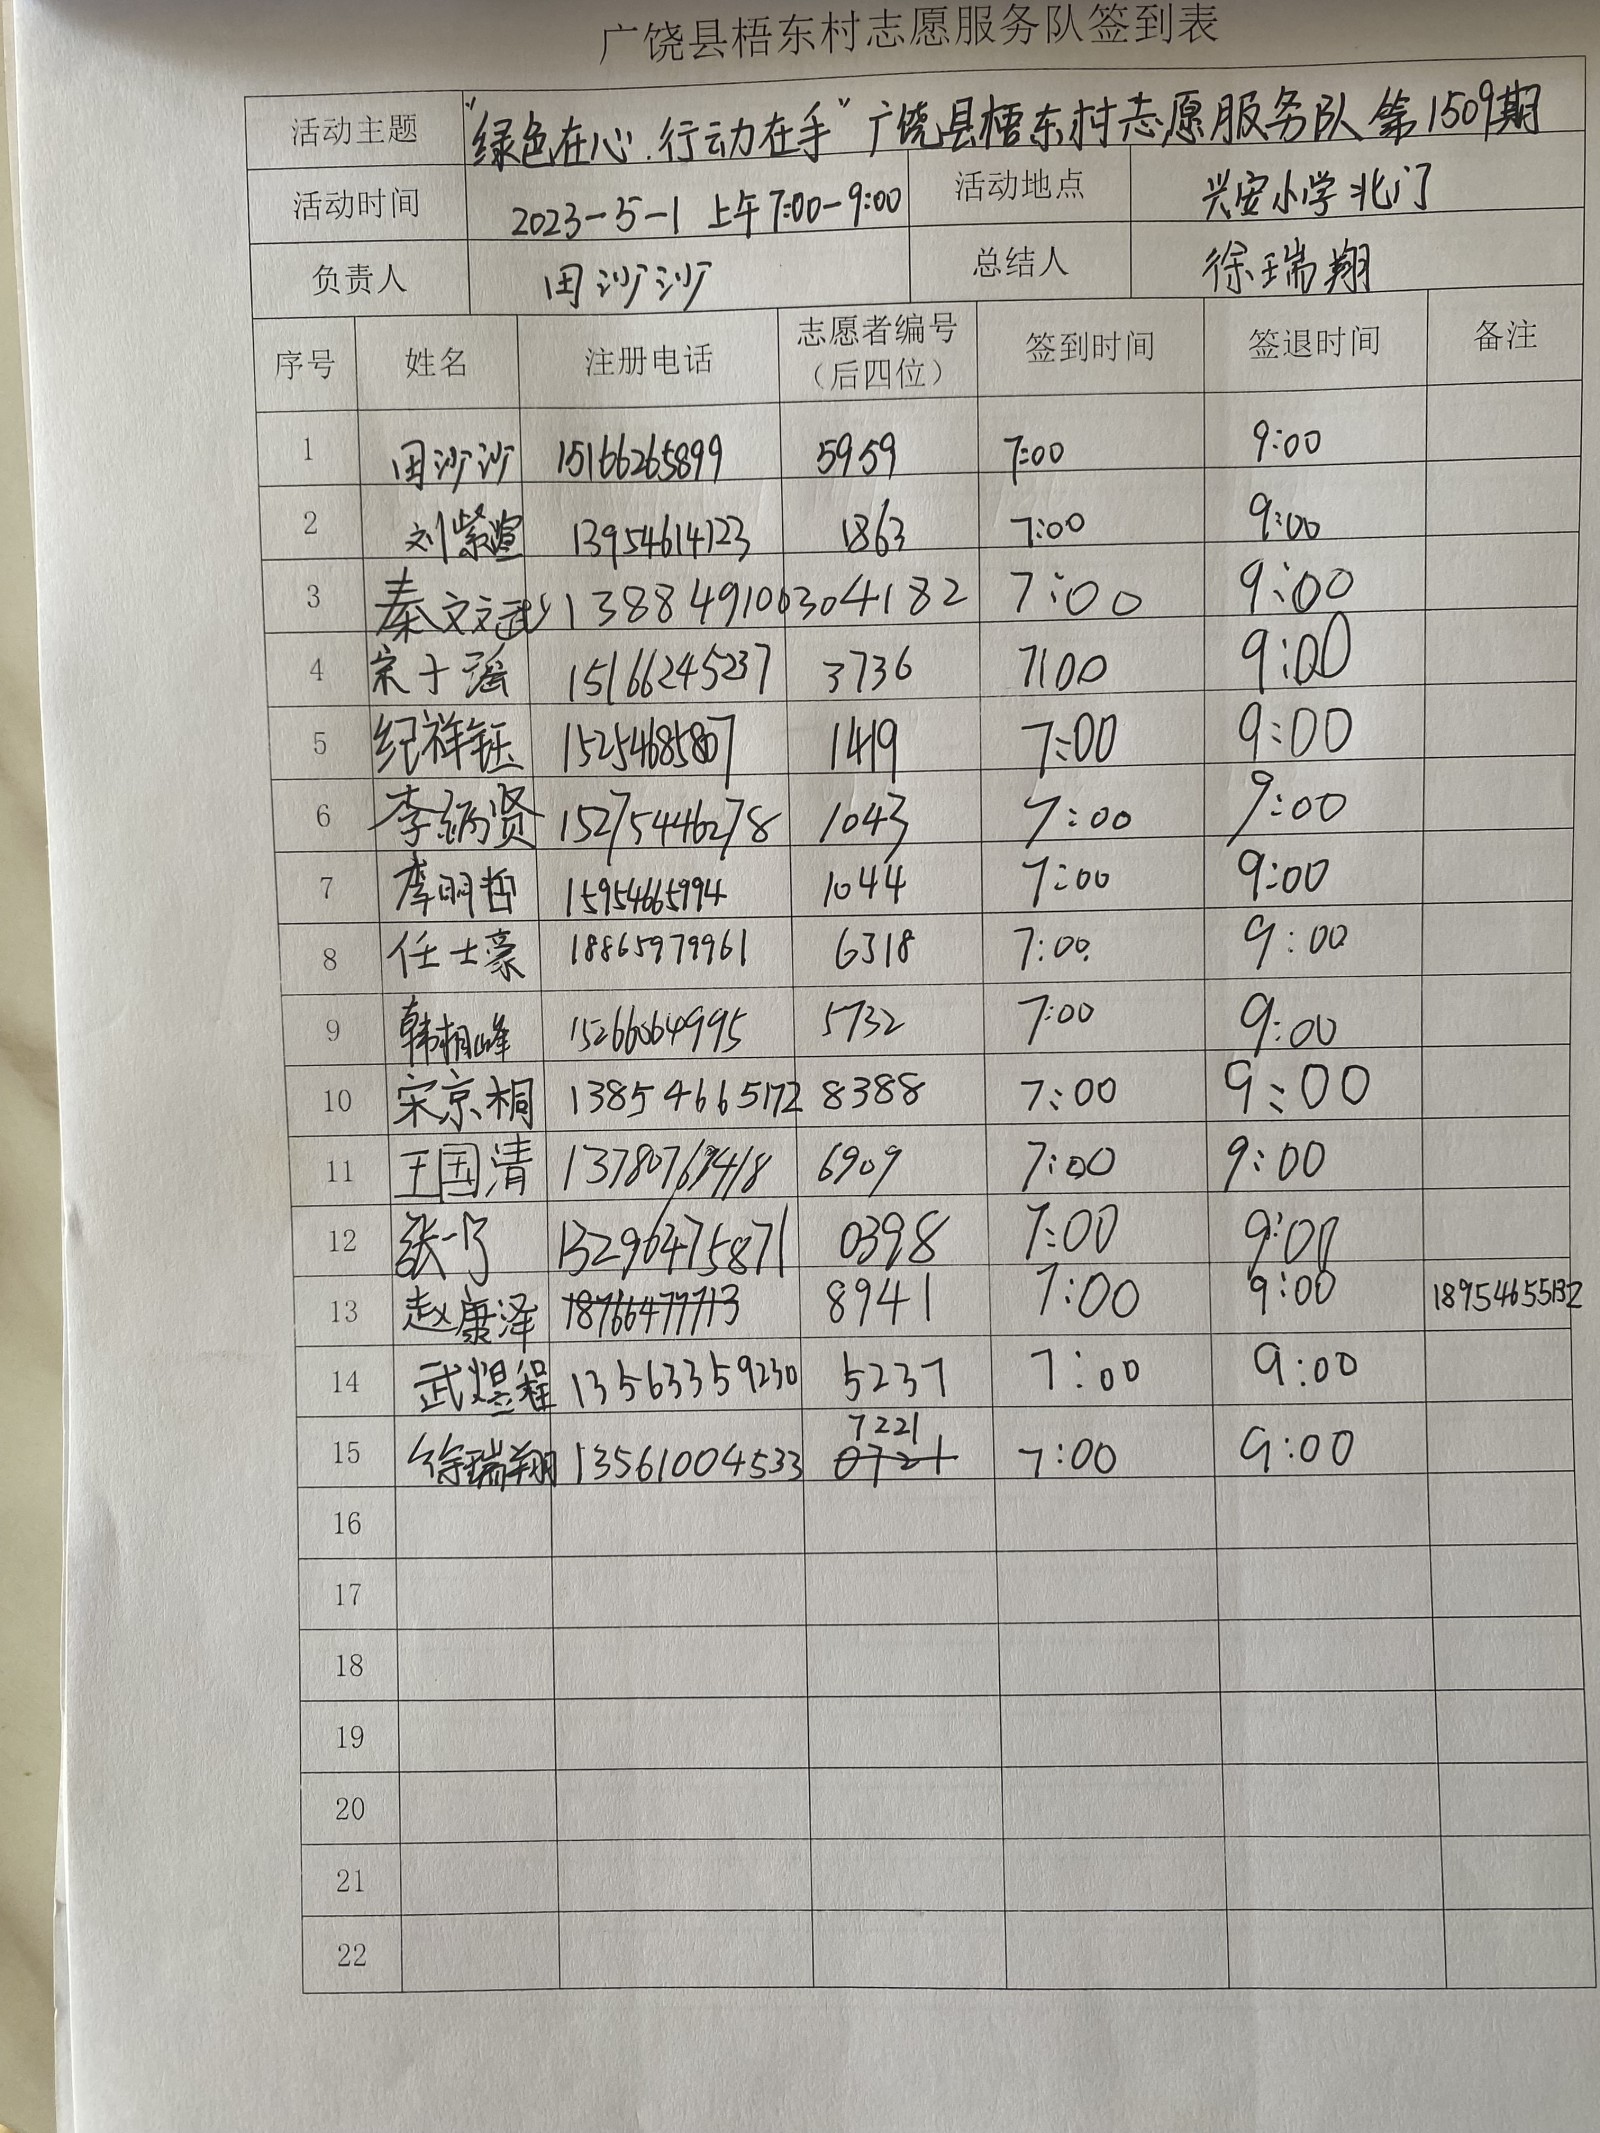 广饶县梧东村志愿服务队签到表
活动主题 "绿色在心.行动在手"广饶县梧东村志愿服务队第1509期
活动时间 2023-5-1 上午7:00-9:00 活动地点 兴安小学北门
负责人 田沙沙 总结人 徐瑞翔
序号 姓名 注册电话 志愿者编号（后四位） 签到时间 签退时间 备注
1 田沙沙 15166265899 5959 7:00 9:00
2 刘紫煊 13954614123 1863 7:00 9:00
3 秦文武 13884910630 4182 7:00 9:00
4 宋于瑶 15166245237 3736 7:00 9:00
5 纪祥钰 15254685807 1419 7:00 9:00
6 李炳贤 15275446278 1043 7:00 9:00
7 李明哲 15954665994 1044 7:00 9:00
8 任士豪 18865979961 6318 7:00 9:00
9 韩相峰 15266064995 5732 7:00 9:00
10 宋京桐 13854665172 8388 7:00 9:00
11 王国清 13780769418 6909 7:00 9:00
12 张一 13296475871 0398 7:00 9:00
13 赵康泽 18766477713 8941 7:00 9:00 18954655132
14 武煜程 13563359230 5237 7:00 9:00
7221
15 徐瑞翔 13561004533 0721 7:00 9:00
16
17
18
19
20
21
22